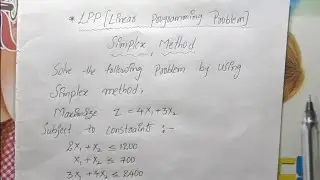 * LPP [Linear Programming Problem]
Simplex Method
Solve the following Problem by using
Simplex method,
Maximize Z = 4x₁+3x₂
Subject to constraints :-
2x₁ + x₂ ≤ 1200
x₁ + x₂ ≤ 700
3x₁ + 4x₂ ≤ 2400